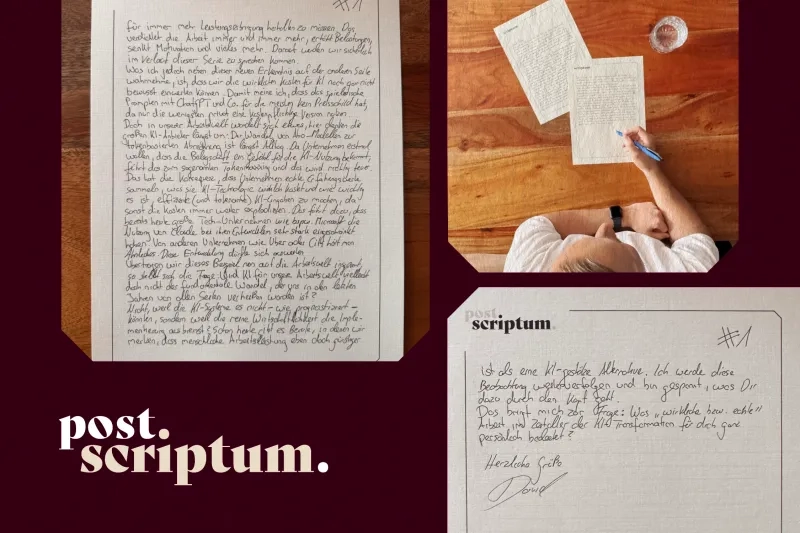 für immer mehr Leistungserbringung herhalten zu müssen. Das
verdichtet die Arbeit immer und immer mehr, erhöht Belastungen,
senkt Motivation und vieles mehr. Damit werden wir sicherlich
im Verlauf dieser Serie zu sprechen kommen.
Was ich jedoch neben dieser neuen Erkenntnis auf der anderen Seite
wahrnehme, ist, dass wir die wirklichen Kosten für KI noch gar nicht
bewusst einwerten können. Damit meine ich, dass das spielerische
Prompten mit ChatGPT und Co. für die meisten kein Preisschild hat,
da nur die wenigsten privat eine kostenpflichtige Version nutzen.
Doch in unserer Arbeitswelt wandelt sich etwas, hier denken die
großen KI-Anbieter längst um. Der Wandel von Abo-Modellen zur
tokenbasierten Abrechnung ist längst Alltag. Da Unternehmen
wollen, dass die Belegschaft ein Gefühl für die KI-Nutzung bekommt,
führt das zum sogenannten Tokenmaxxing und das wird richtig teuer.
Das hat die Konsequenz, dass Unternehmen echte Erfahrungswerte
sammeln, was sie KI-Technologie wirklich kostet und wie wichtig
es ist, effiziente (und tolerante) KI-Eingaben zu machen, da
sonst die Kosten immer weiter explodieren. Das führt dazu, dass
bereits heute große Tech-Unternehmen wie bspw. Microsoft die
Nutzung von Claude bei ihren Entwicklern sehr stark eingeschränkt
haben. Von anderen Unternehmen wie Uber oder Citi hört man
Ähnliches. Diese Entwicklung dürfte sich ausweiten.
Übertragen wir dieses Beispiel nun auf die Arbeitswelt insgesamt,
so stellt sich die Frage: Wird KI für unsere Arbeitswelt vielleicht
doch nicht der fundamentale Wandel, der uns in den letzten
Jahren von allen Seiten verheißen worden ist?
Nicht, weil die KI-Systeme es nicht – wie prognostiziert –
könnten, sondern weil die reine Wirtschaftlichkeit die Imple-
mentierung ausbremst? Schon heute gibt es Bereiche, in denen wir
merken, dass menschliche Arbeitsleistung eben doch günstiger
post
scriptum.
#1
ist als eine KI-gestützte Alternative. Ich werde diese
Beobachtung weiterverfolgen und bin gespannt, was Dir
dazu durch den Kopf geht.
Das bringt mich zur Frage: Was „wirkliche bzw. echte"
Arbeit im Zeitalter der KI-Transformation für dich ganz
persönlich bedeutet?
Herzliche Grüße
Daniel
post
scriptum.